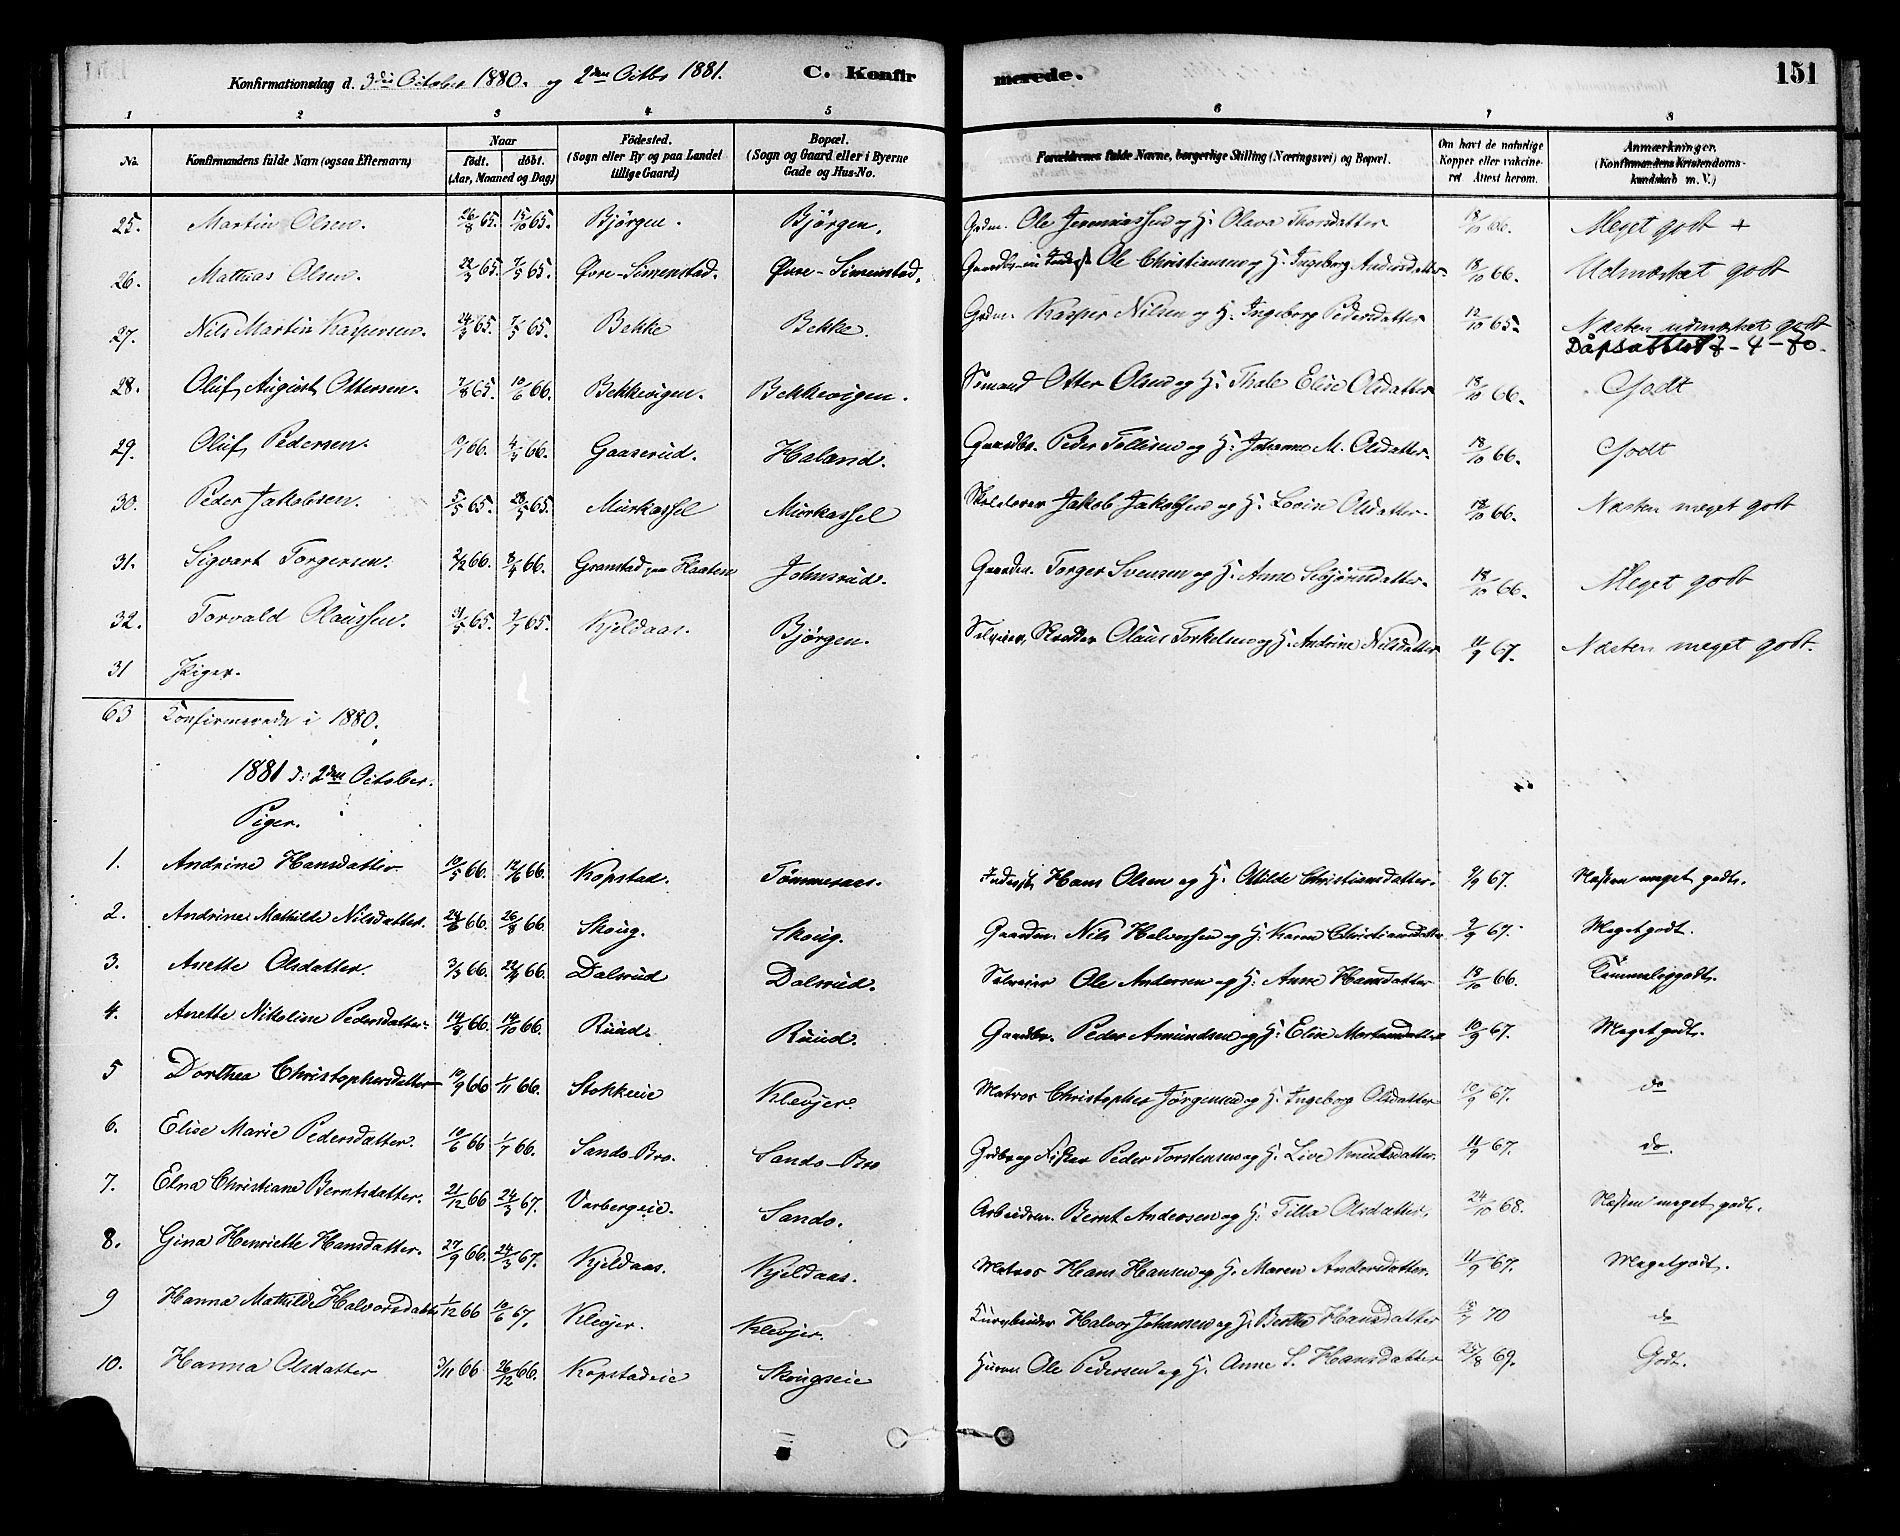 Konfirmationsdag d. 3die October 1880. og 2den Octbr 1881. C. Konfirmerede. 151
1 2 3 4 5 6 7 8
No. Konfirmandens fulde Navn (ogsaa Efternavn). Naar født. døbt. (Aar, Maaned og Dag) Fødested. (Sogn eller By og paa Landet tillige Gaard) Bopæl. (Sogn og Gaard eller i Byerne Gade og Hus-No. Forældrenes fulde Navne, borgerlige Stilling (Næringsvei) og Bopæl. Om havt de naturlige Kopper eller vakcineret Attest herom. Anmærkninger. (Konfirmandens Kristendomskundskab m. V.)
25. Martin Olsen. 26/8 65. 15/10 65. Bjørgen. Bjørgen. Gdm. Ole Jeremiassen og H. Olava Thorsdatter 18/10 66. Meget godt +
26. Mathias Olsen. 22/3 65. 7/5 65. Øvre-Simenstad. Øvre-Simenstad. Ole Christiansen og H. Ingeborg Andersdatter. 18/10 66. Udmærket godt
27. Nils Martin Kaspersen. 24/3 65. 7/5 65. Bekke Bekke. Gdm. Kasper Nilsen og H. Ingeborg Pedersdatter 12/10 65. Næsten udmærket godt
Dåpsattest 7-4-70.
28. Oluf August Ottersen. 7/8 65. 10/6 66. Bekkevigen. Bekkevigen. Sømand Otter Olsen og H. Thale Elise Olsdatter 18/10 66. Godt
29. Oluf Pedersen. 66. 66. Gaaserud. Haland. Gaardbr. Peder Tollisen og H. Johanne M. Olsdatter. 18/10 66. Godt
30. Peder Jakobsen. 5/5 65. 28/5 65. Murkassel Murkassel Jakob Jakobsen og H. Lovise Olsdatter. 18/10 66. Næsten meget godt
31. Sigvart Torgersen. 2/2 66. 8/4 66. Granstad paa Johnsrud. Gaardm. Torger Svensen og H. Anne Sibjørnsdatter. 18/10 66. Meget godt
32. Torvald Olaussen. 31/5 65. 9/7 65. Kjeldaas. Bjørgen. Selveier, Skrædder Olaus Torkelsen og H. Andrine Nilsdatter 11/9 67. Næsten meget godt.
31 Piger.
63 Confirmerede i 1880.
1881 d: 2den October.
Piger.
1. Andrine Hansdatter 10/5 66. 12/6 66. Kopstad. Tømmeraas. Inderst Hans Olsen og H. Olilde Christiansdatter. 9/9 67. Næsten meget godt.
2. Andrine Mathilde Nilsdatter. 66. 26/8 66. Skoug. Skoug. Gaardm. Nils Halvorsen og H. Karen Christiansdatter 9/9 67. Meget godt.
3. Anette Olsdatter. 3/3 66. 66. Dalsrud Dalsrud. Selveier Ole Andersen og H. Anne Hansdatter 18/10 66. Temmelig godt.
4. Anette Nikoline Pedersdatter. 14/8 66. 14/10 66. Ruud. Ruud. Gaardbr. Peder Amundsen og H. Elise Mortensdatter 10/9 67. Meget godt.
5 Dorthea Christophersdatter 10/9 66 1/11 66. Stokkeeie Klevjer. Matros Christopher Jørgensen og H. Ingeborg Olsdatter 10/9 67. do
6. Elise Marie Pedersdatter. 10/6 66 1/7 66. Sando-Bro. Sando-Bro Gdbr og Fisker Peder Torstensen og H. Live Knudsdatter. 11/9 67. do.
7. Elna Christiane Berntsdatter. 21/12 66 24/3 67. Varbergeie. Sando. Arbeidsm. Bernt Andersen og H. Tilla Olsdatter. 24/10 68. Næsten meget godt.
8. Gina Henriette Hansdatter. 27/9 66. 24/3 67. Kjeldaas. Kjeldaas. Matros Hans Hansen og H. Maren Andersdatter. 11/9 67. Meget godt.
9 Hanna Mathilde Halvorsdatter 1/12 66 10/6 67. Klevjer. Klevjer. Halvor Johansen og H. Berthe Hansdatter 70 do
10. Hanna Olsdatter 3/11 66 26/12 66. Kopstadeie Skougseie Ole Pedersen og H. Anne S. Hansdatter 25/8 69. Godt.